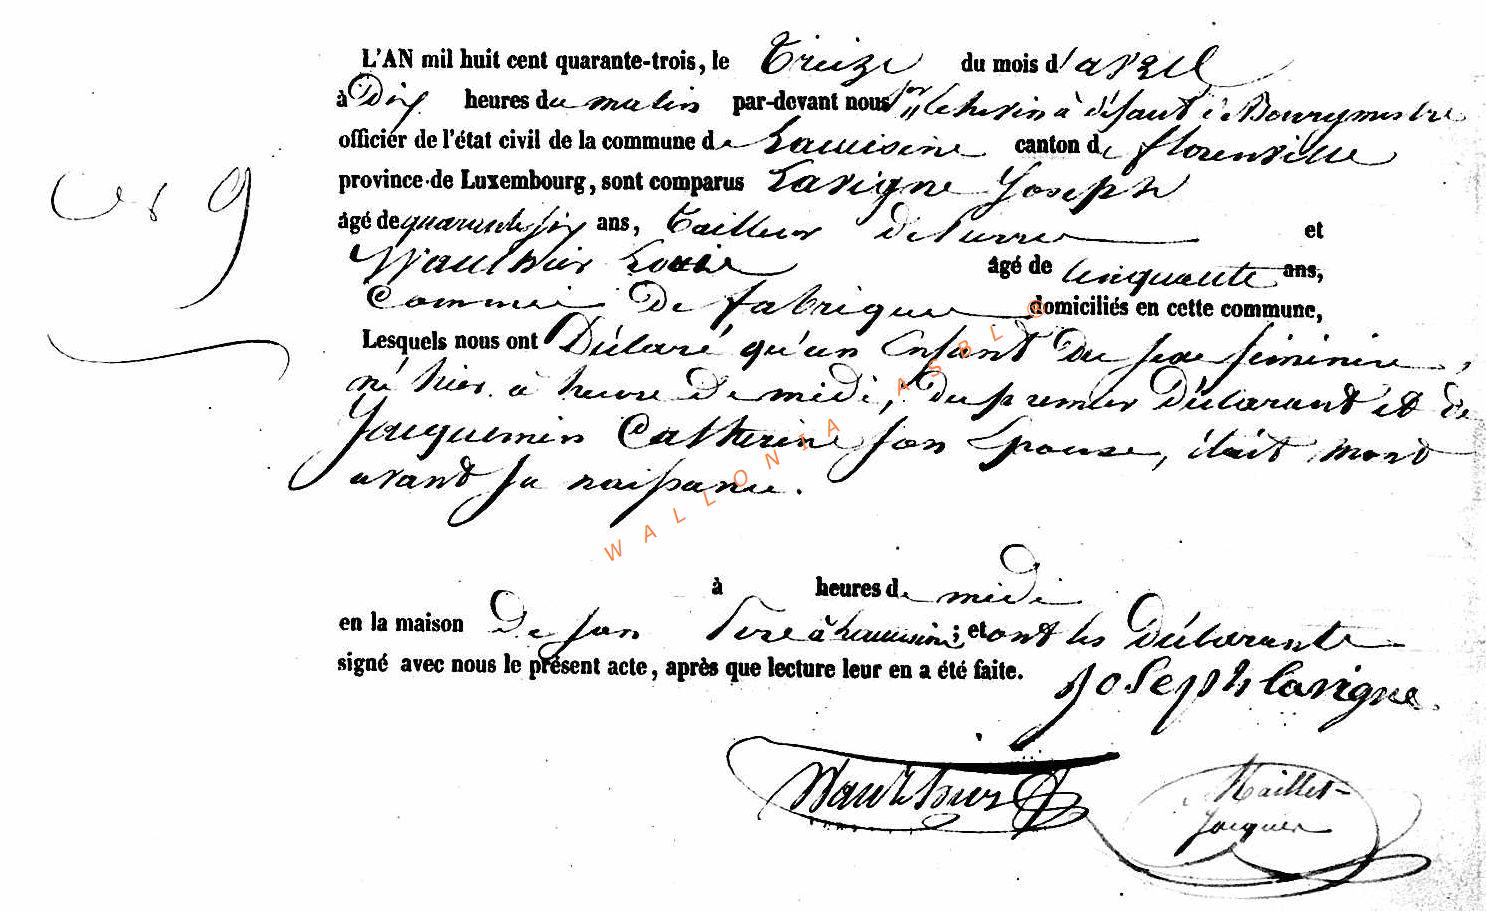 L'AN mil huit cent quarante-trois, le Treize du mois d'avril
à Dix heures du matin par-devant nous Echevin à défaut de Bourgmestre
officier de l'état civil de la commune de Lacuisine canton de florenville
province de Luxembourg, sont comparus Lavigne Joseph
âgé de quarante six ans, Tailleur de Pierre et
Wauthier Louis âgé de Cinquante ans,
Commis De fabrique domiciliés en cette commune,
Lesquels nous ont Déclaré qu'un Enfant Du sexe féminin,
né hier à heure De midi, Du premier Déclarant et de
Jacquemin Catherine son Epouse, était mort
avant sa naissance.
à heures de midi
en la maison De son Père à Lacuisine; et ont les Déclarants
signé avec nous le présent acte, après que lecture leur en a été faite.
Joseph lavigne
Wauthier
Maillet-
Jacques
9
WALLONIA ASBL ©